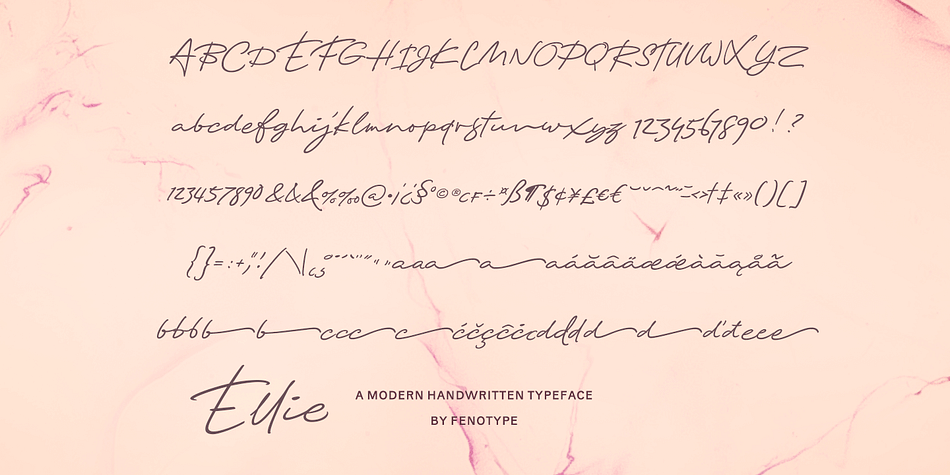 ABCDEFGHIJKLMNOPQRSTUVWXYZ
abcdefghijklmnopqrstuvwxyz 1234567890!?
123457890&&&%‰@•¡¿§°©®CF÷¤ß¶$¢¥£€€
{}=:+;"!/\|aaa a aáăâäæǽàāąåã
bbbb b ccc c ćčçĉċdddd d ďđeee
Ellie
A MODERN HANDWRITTEN TYPEFACE
BY FENOTYPE